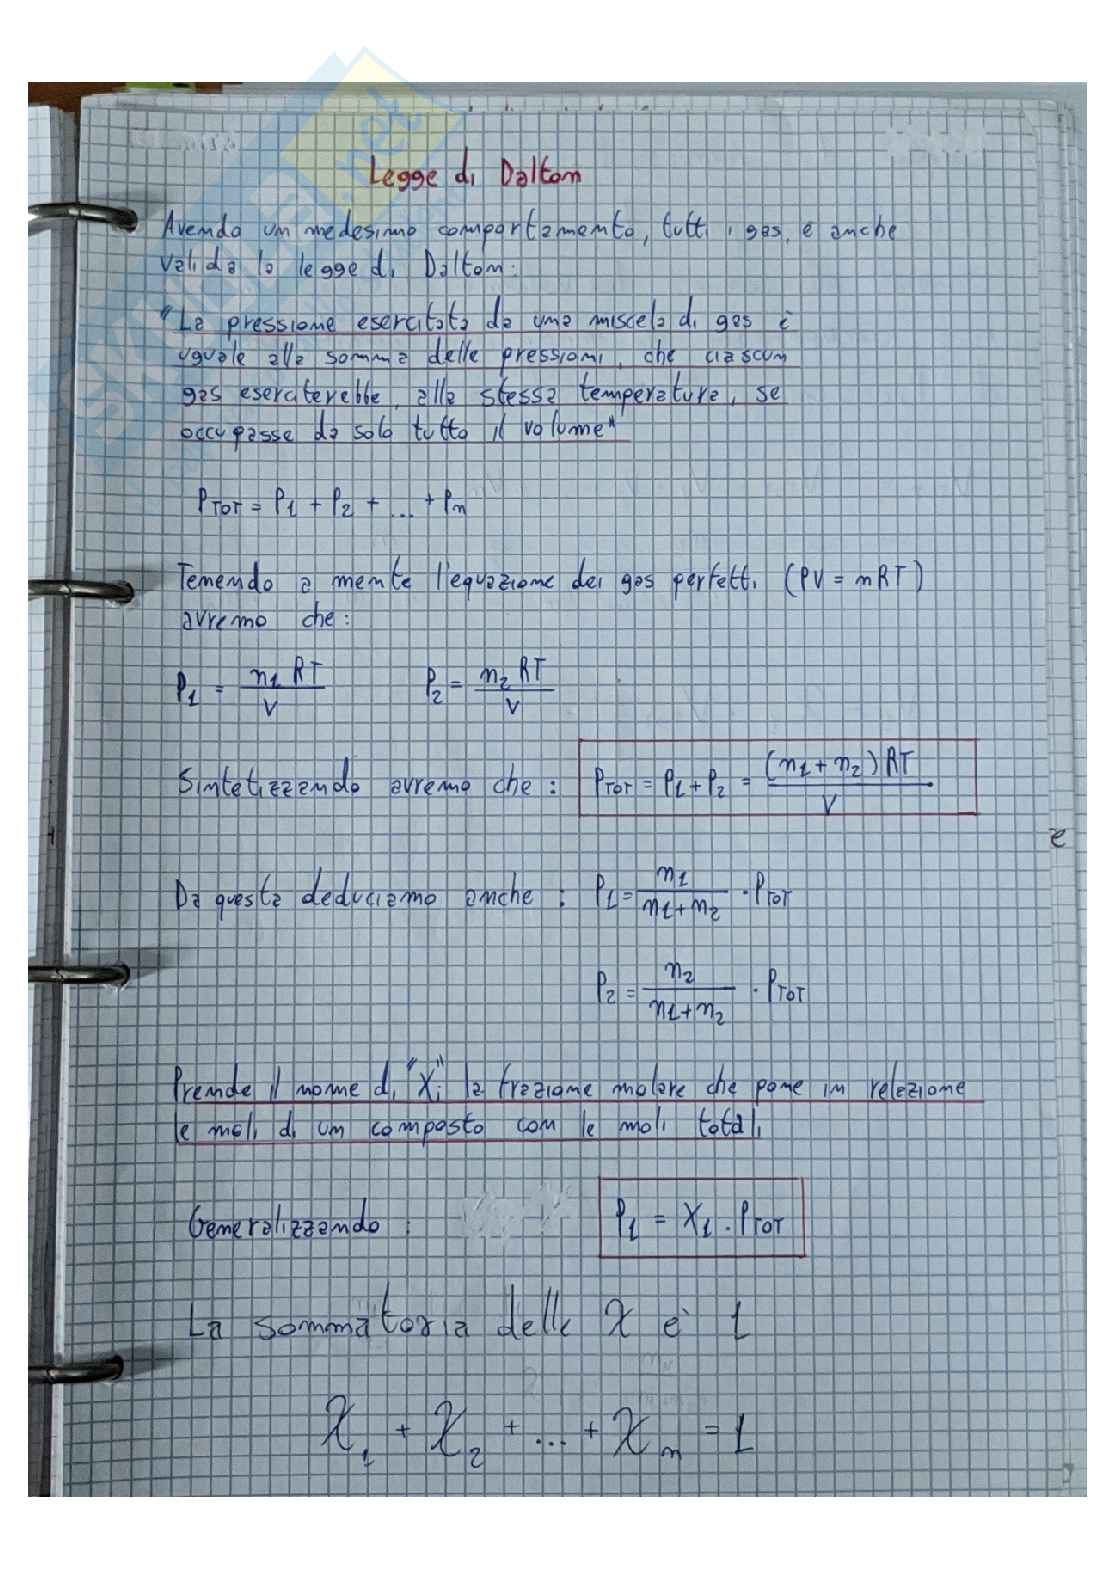 Legge di Dalton
Avendo un medesimo comportamento, tutti i gas, è anche
valida la legge di Dalton:
"La pressione esercitata da una miscela di gas è
uguale alla somma delle pressioni, che ciascun
gas eserciterebbe, alla stessa temperatura, se
occupasse da solo tutto il volume"
PTOT = P1 + P2 + ... + Pn
Tenendo a mente l'equazione dei gas perfetti (PV = nRT)
avremo che:
P1 = n1 RT / V P2 = n2 RT / V
Sintetizzando avremo che : PTOT = P1 + P2 = (n1 + n2) RT / V
e
Da questa deduciamo anche : P1 = n1 / n1 + n2 · PTOT
P2 = n2 / n1 + n2 · PTOT
Prende il nome di "Xi" la frazione molare che pone in relazione
le moli di un composto con le moli totali
Generalizzando : P1 = X1 . PTOT
La sommatoria delle X è 1
X1 + X2 + ... + Xn = 1